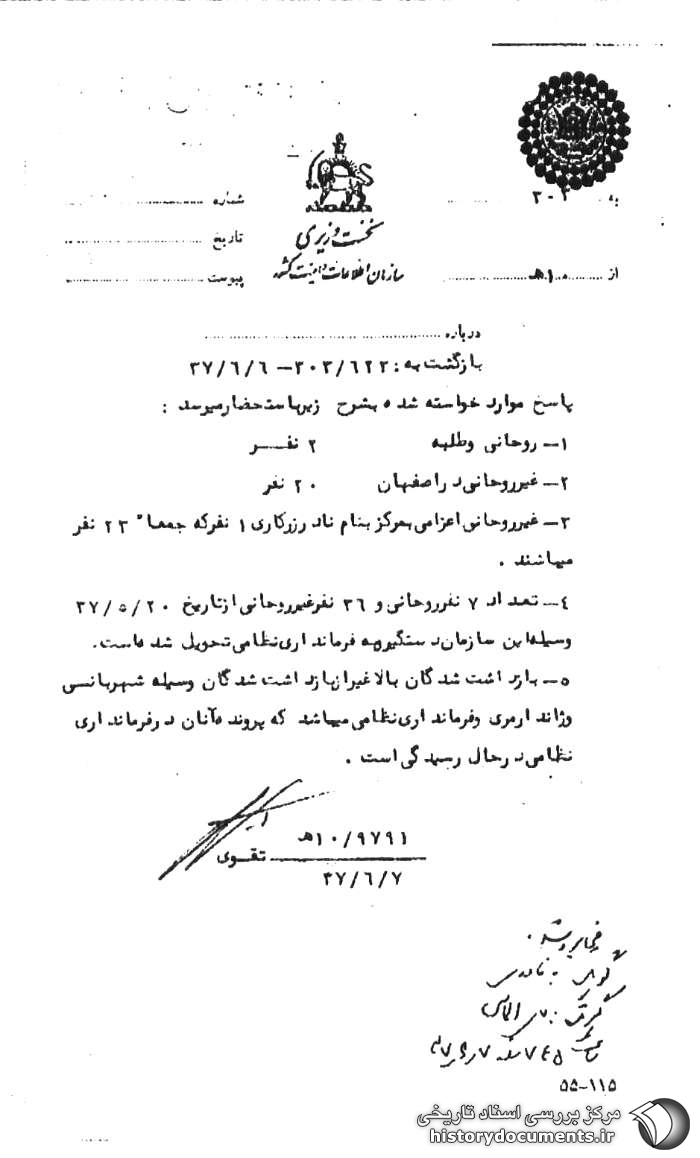 به ۳۰۲
شماره
نخست وزیری
تاریخ
سازمان اطلاعات و امنیت کشور
از ۱۰هـ
پیوست
درباره
بازگشت به : ۳۰۲/۶۲۲ – ۳۷/۶/۶
پاسخ موارد خواسته شده بشرح زیر باستحضار میرسد :
۱– روحانی وطلبه ۲ نفر
۲– غیرروحانی در اصفهان ۲۰ نفر
۳– غیرروحانی اعزامی بمرکز بنام نادر رزرکاری ۱ نفر که جمعا" ۲۳ نفر
میباشند .
٤– تعداد ۷ نفر روحانی و ۳۶ نفر غیرروحانی از تاریخ ۳۷/۵/۲۰
وسیله این سازمان دستگیر و به فرمانداری نظامی تحویل شده است.
۵– بازداشت شدگان بالا غیر از بازداشت شدگان وسیله شهربانسی
وژاندارمری وفرمانداری نظامی میباشد که پرونده آنان در فرمانداری
نظامی در حال رسیدگی است .
۱۰/۹۷۹۱هـ
تقوی
۳۷/۶/۷
۵۵-۱۱۵
مرکز بررسی اسناد تاریخی
historydocuments.ir